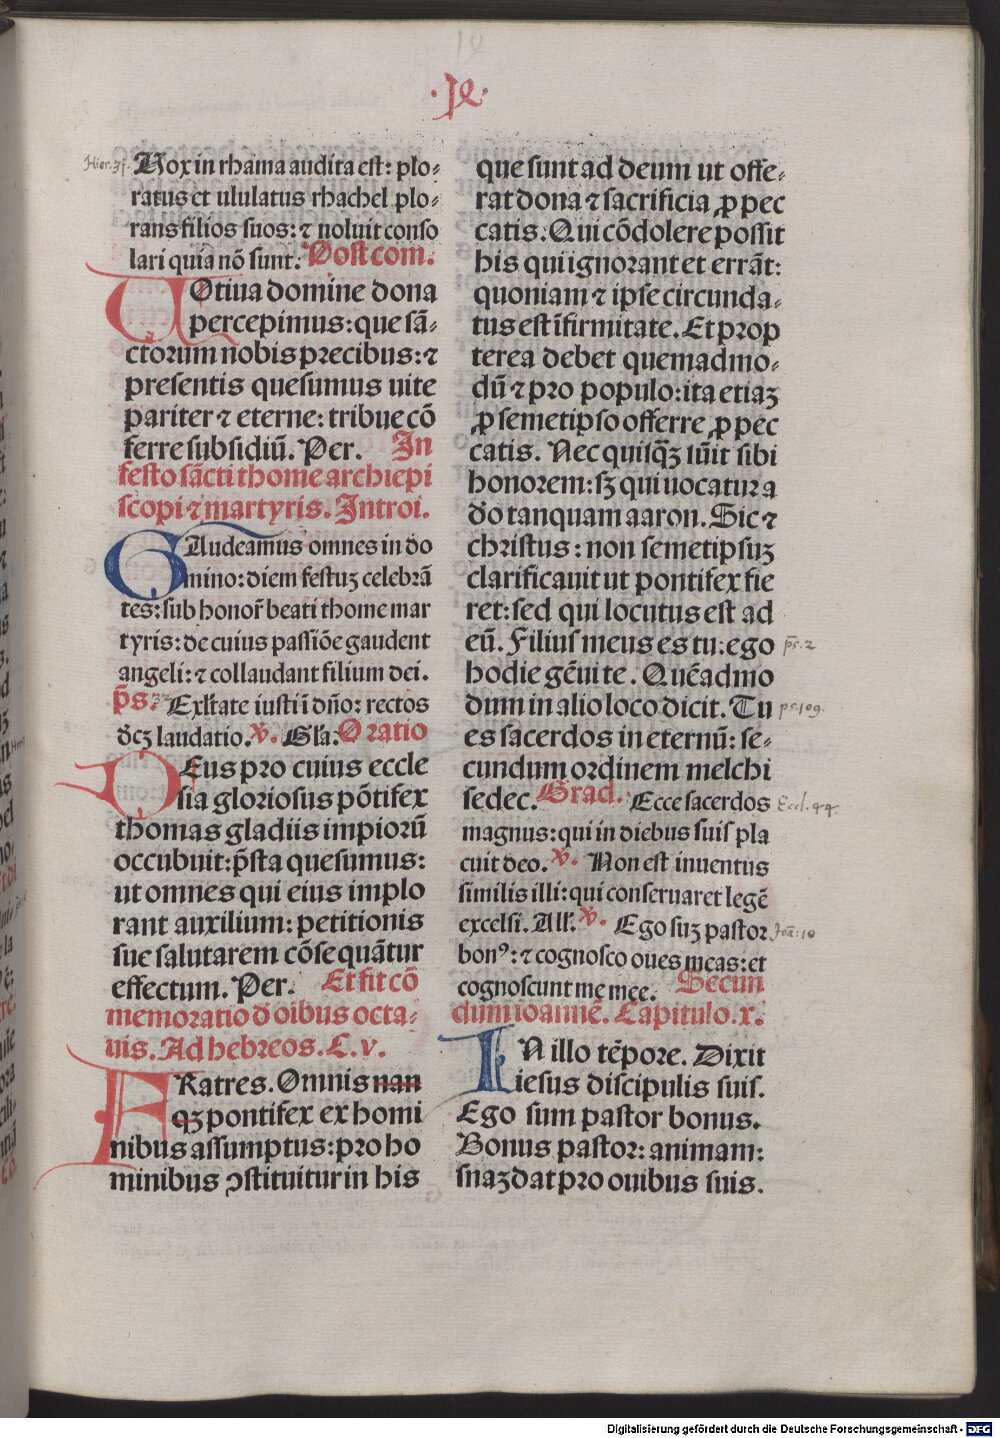 ·ix·
Hier. 31.
Uox in rhama audita est: plo⸗
ratus et ululatus rhachel plo⸗
rans filios suos: ⁊ noluit conso
lari quia nō sunt. Post com.
UOtiua domine dona
percepimus: que sā⸗
ctorum nobis precibus: ⁊
presentis quesumus uite
pariter ⁊ eterne: tribue cō
ferre subsidiū. Per. In
festo sācti thome archiepi
scopi ⁊ martyris. Introi.
GAudeamus omnes in do
mino: diem festuꝫ celebrā
tes: sub honor̄ beati thome mar
tyris: de cuius passiōe gaudent
angeli: ⁊ collaudant filium dei.
p̄s. 32 Exl'tate iusti ī dn̄o: rectos
dcꝫ laudatio. ℣. Gl'a. Oratio
DEus pro cuius eccle
sia gloriosus pōtifex
thomas gladiis impiorū
occubuit: p̄sta quesumus:
ut omnes qui eius implo
rant auxilium: petitionis
sue salutarem cōsequātur
effectum. Per. Et fit cō
memoratio d oībus octa⸗
uis. Ad hebreos. C. v.
FRatres. Omnis nan
qꝫ pontifex ex homi
nibus assumptus: pro ho
minibus ꝯstituitur in his
que sunt ad deum ut offe⸗
rat dona ⁊ sacrificia ꝓ pec
catis. Qui cōdolere possit
his qui ignorant et errāt:
quoniam ⁊ ipse circunda⸗
tus est īfirmitate. Et prop
terea debet quemadmo⸗
dū ⁊ pro populo: ita etiaꝫ
ꝓ semetipso offerre ꝓ pec
catis. Nec quisq̄ꝫ sūit sibi
honorem: sꝫ qui uocatur a
do tanquam aaron. Sic ⁊
christus: non semetipsuꝫ
clarificauit ut pontifex fie
ret: sed qui locutus est ad
eū. Filius meus es tu: ego p̄s. 2
hodie gēui te. Quēadmo
dum in alio loco dicit. Tu ps. 109.
es sacerdos in eternū: se⸗
cundum ordinem melchi
sedec. Grad. Ecce sacerdos Eccl. 44.
magnus: qui in diebus suis pla
cuit deo. ℣. Non est inuentus
similis illi: qui conseruaret legē
excelsi. All'. ℣. Ego suꝫ pastor Joā: 10
bonꝰ: ⁊ cognosco oues meas: et
cognoscunt me mee. Secun
dum ioannē. Capitulo. x.
IN illo tēpore. Dixit
iesus discipulis suis.
Ego sum pastor bonus.
Bonus pastor: animam:
snaꝫ dat pro ouibus suis.
Digitalisierung gefördert durch die Deutsche Forschungsgemeinschaft - DFG